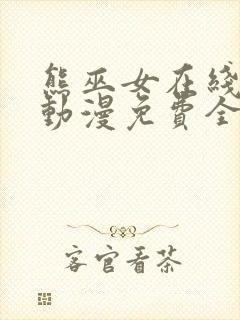 熊巫女在綫
動漫免費全
客官看茶